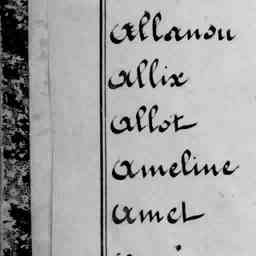 Allanou
Allix
Allot
Ameline
Amet